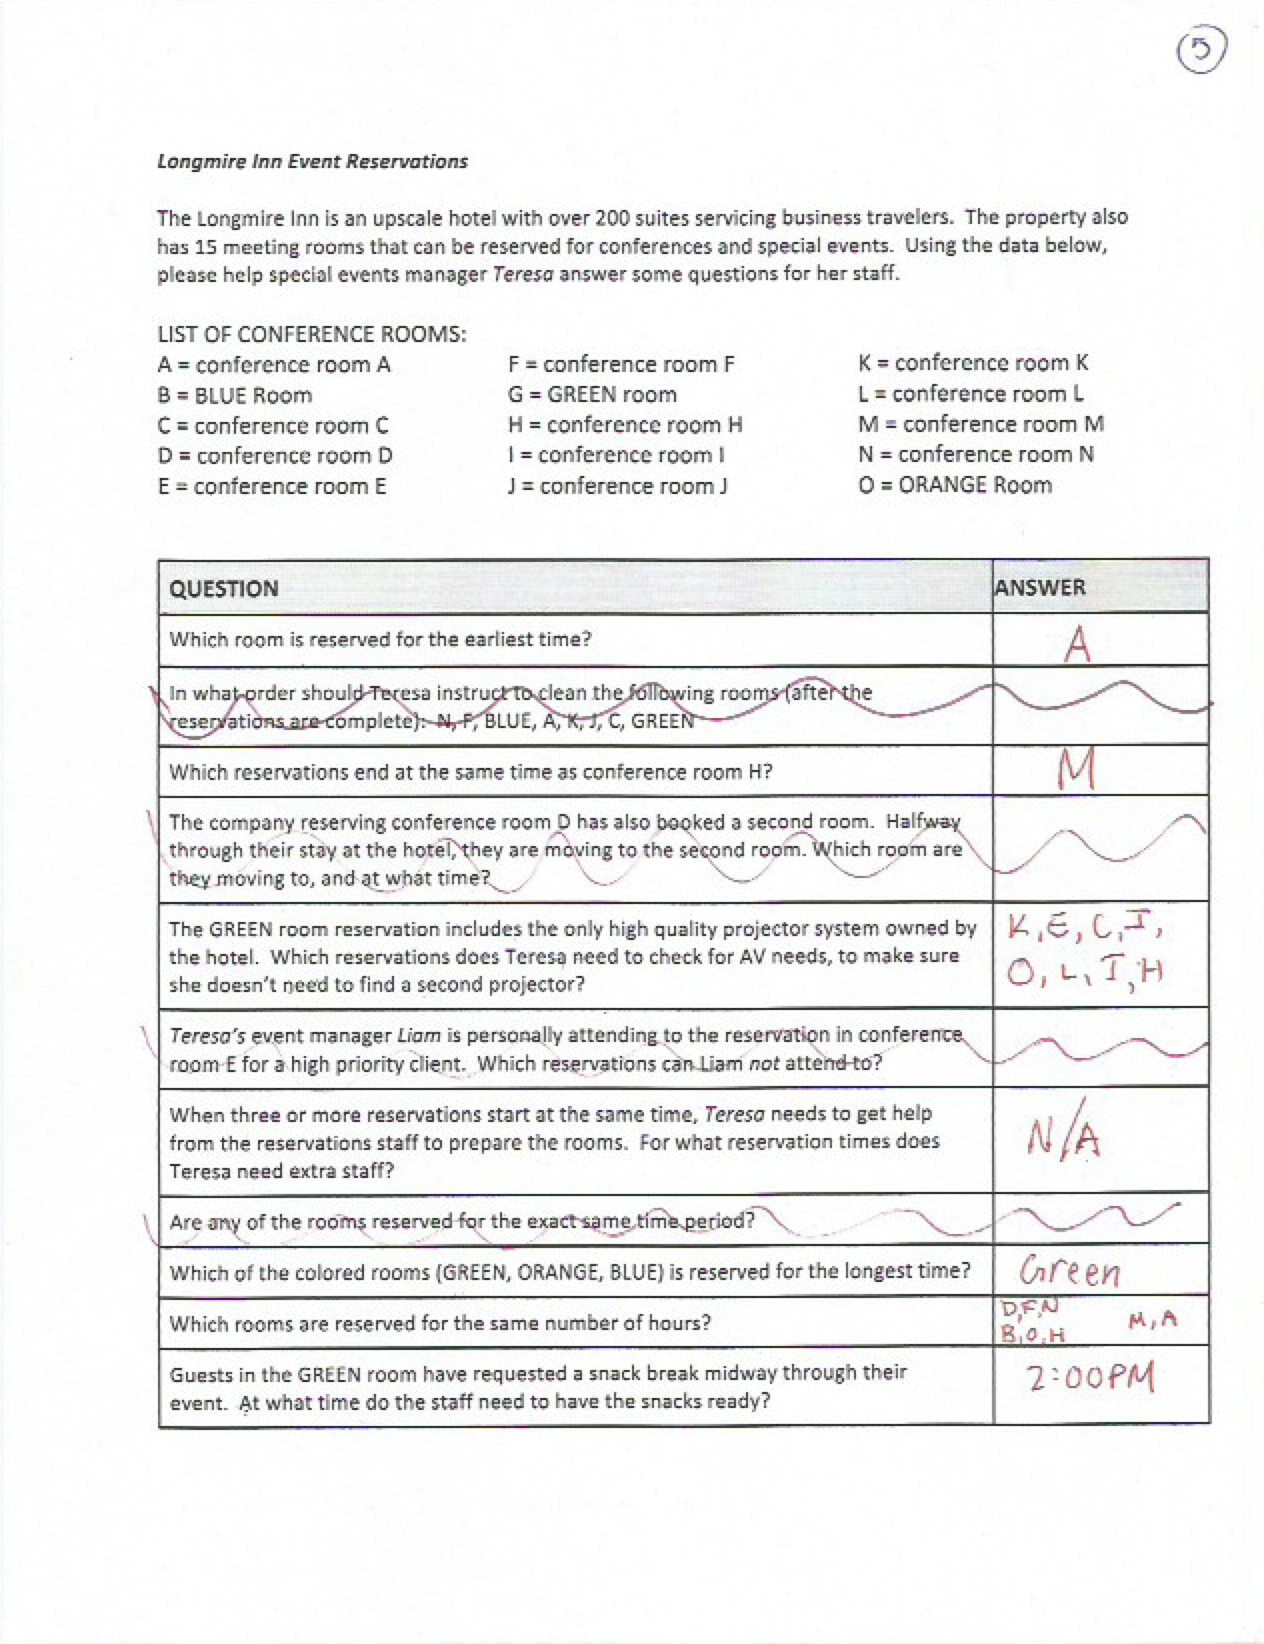 5
Longmire Inn Event Reservations
The Longmire Inn is an upscale hotel with over 200 suites servicing business travelers. The property also
has 15 meeting rooms that can be reserved for conferences and special events. Using the data below,
please help special events manager Teresa answer some questions for her staff.
LIST OF CONFERENCE ROOMS:
A = conference room A
B = BLUE Room
C = conference room C
D = conference room D
E = conference room E
F = conference room F
G = GREEN room
H = conference room H
I = conference room I
J = conference room J
K = conference room K
L = conference room L
M = conference room M
N = conference room N
O = ORANGE Room
QUESTION
ANSWER
Which room is reserved for the earliest time?
A
In what order should Teresa instruct to clean the following rooms (after the
reservations are complete): N, F, BLUE, A, K, J, C, GREEN
Which reservations end at the same time as conference room H?
M
The company reserving conference room D has also booked a second room. Halfway
through their stay at the hotel, they are moving to the second room. Which room are
they moving to, and at what time?
The GREEN room reservation includes the only high quality projector system owned by
the hotel. Which reservations does Teresa need to check for AV needs, to make sure
she doesn't need to find a second projector?
K, E, C, I,
O, L, I, H
Teresa's event manager Liam is personally attending to the reservation in conference
room E for a high priority client. Which reservations can Liam not attend to?
When three or more reservations start at the same time, Teresa needs to get help
from the reservations staff to prepare the rooms. For what reservation times does
Teresa need extra staff?
N/A
Are any of the rooms reserved for the exact same time period?
Which of the colored rooms (GREEN, ORANGE, BLUE) is reserved for the longest time?
Green
Which rooms are reserved for the same number of hours?
D,F,N
B,O,H
M,A
Guests in the GREEN room have requested a snack break midway through their
event. At what time do the staff need to have the snacks ready?
2:00PM